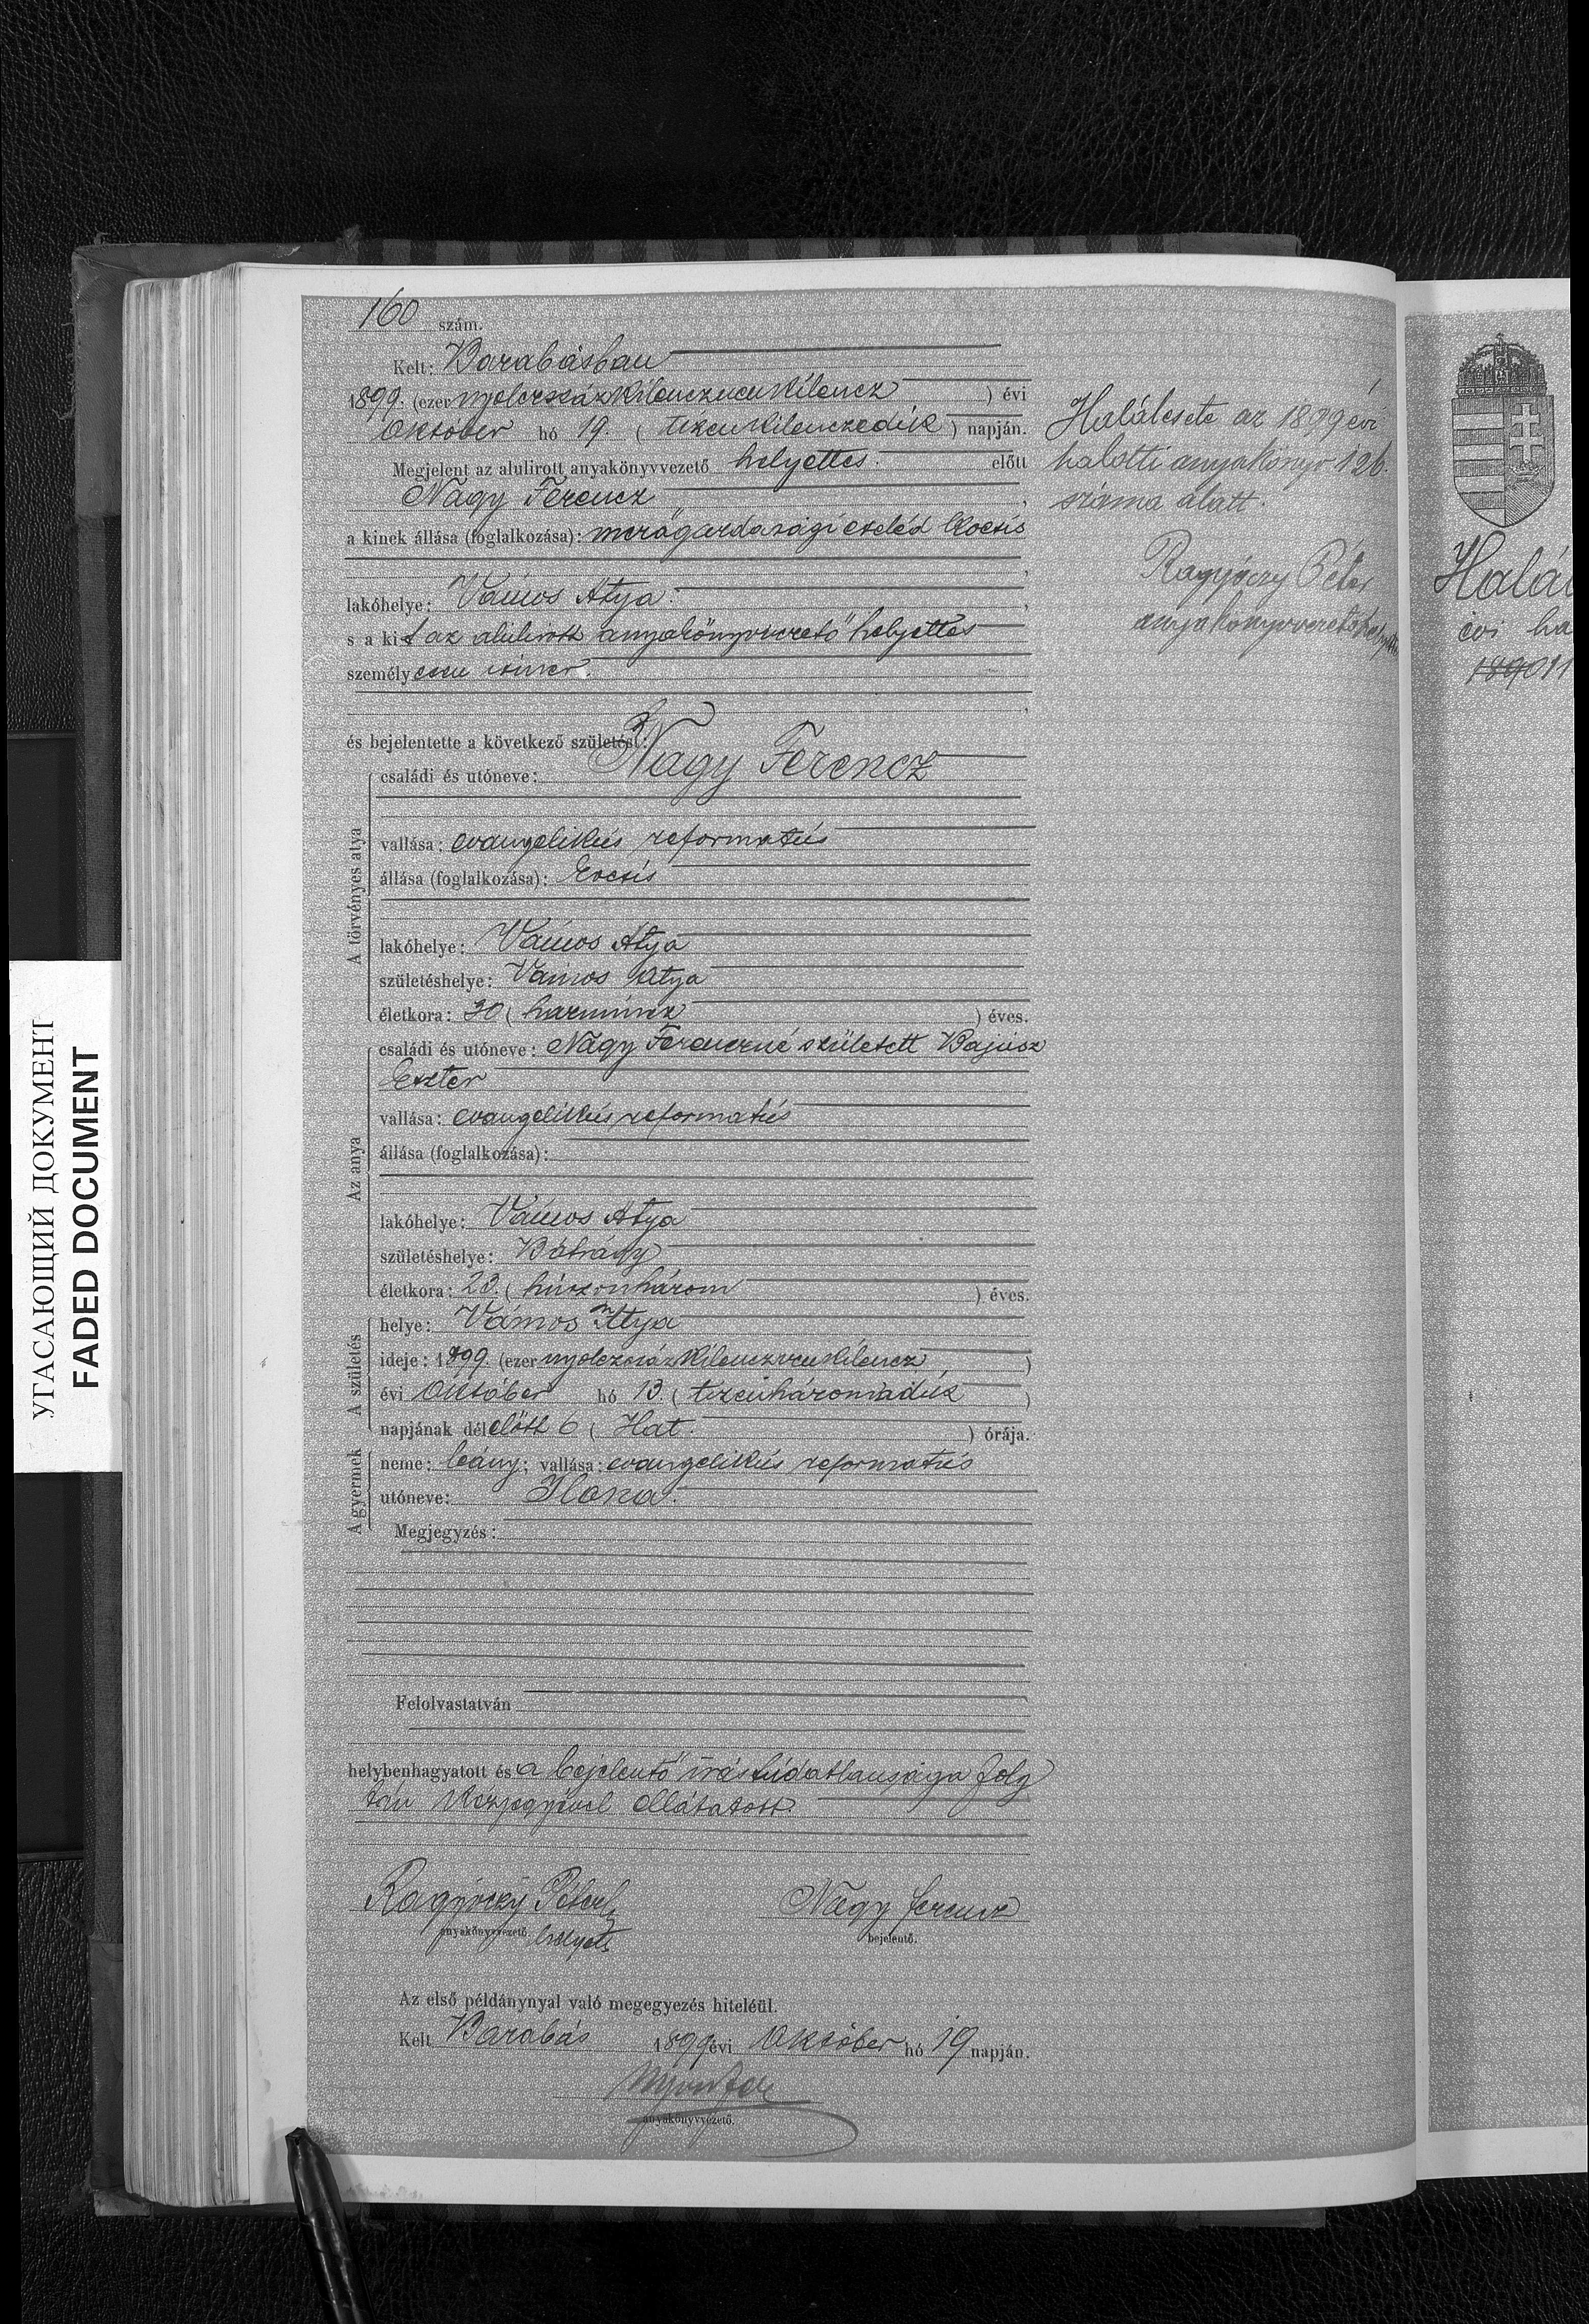 160 szám.
Kelt: Barabásban
1899. (ezer nyolczszázkilenczvenkilencz) évi
Október hó 19. (tizenkilenczedik) napján.
Megjelent az alulirott anyakönyvvezető helyettes. előtt
Nagy Ferencz,
a kinek állása (foglalkozása): mezőgazdasági cseléd kocsis
lakóhelye: Vámos Atya.
s a kit az alulirott anyakönyvvezető helyettes
személyesen ismer.
és bejelentette a következő születést:
A törvényes atya
családi és utóneve: Nagy Ferencz
vallása: evangelikus reformatus
állása (foglalkozása): kocsis
lakóhelye: Vámos Atya
születéshelye: Vámos Atya
életkora: 30 (harmincz) éves.
Az anya
családi és utóneve: Nagy Ferenczné született
Eszter
vallása: evangelikus reformatus
állása (foglalkozása):
lakóhelye: Vámos Atya
születéshelye: Bátrágy
életkora: 23. (huszonhárom) éves.
A születés
helye: Vámos Atya
ideje: 1899. (ezer nyolczszázkilenczvenkilencz)
évi Október hó 13. (tizenharmadik)
napjának délelőtt 6 (Hat.) órája.
A gyermek
neme: leány; vallása: evangelikus reformatus
utóneve: Ilona.
Megjegyzés:
Felolvastatván
helybenhagyatott és a bejelentő irástudatlansága foly
tán kézjegyével elláttatott.
Péter h. Nagy Ferencz
anyakönyvvezető. helyettes bejelentő.
Az első példánynyal való megegyezés hiteléül.
Kelt Barabás 1899 évi Október hó 19 napján.
anyakönyvvezető.
Halálesete az 1899 évi
halotti anyakönyv 126.
száma alatt.
Péter
anyakönyvvezető helyettes
Halál
évi ha
УГАСАЮЩИЙ ДОКУМЕНТ
FADED DOCUMENT